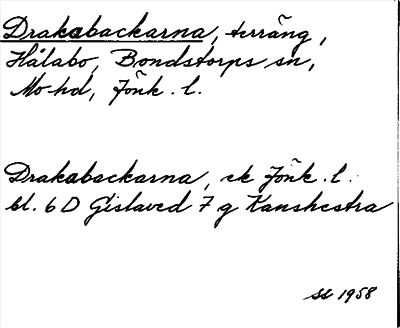 Drakabackarna, terräng,
Hålabo, Bondstorps sn,
Mo hd, Jönk. l.
Drakabackarna, ek Jönk. l.
bl. 6 D Gislaved 7 g Kanshestra
1958